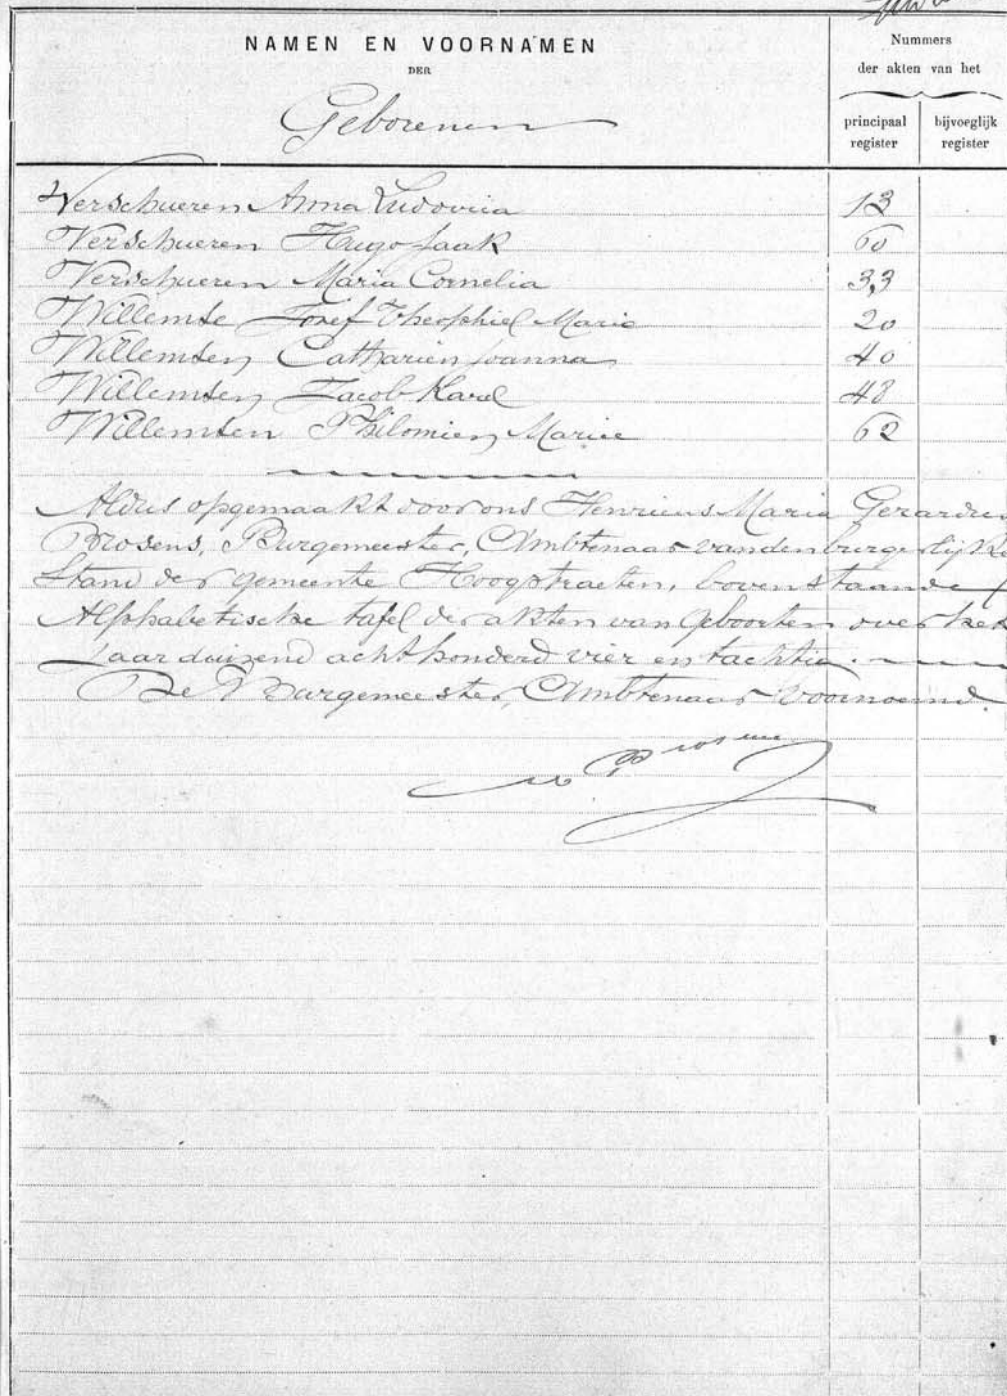 NAMEN EN VOORNAMEN
DER
Geborenen
Nummers
der akten van het
principaal register
bijvoeglijk register
Verschueren Anna Ludovica 13
Verschueren Hugo Jaak 60
Verschueren Maria Cornelia 33
Willemse Josef Theophiel Marie 20
Willemsen Catharien Joanna 40
Willemsen Jacob Karel 48
Willemsen Philomien Mariee 62
Aldus opgemaakt door ons Henricus Maria Gerardus
Brosens, Burgemeester, Ambtenaar van den burgerlijken
Stand der gemeente Hoogstraeten, bovenstaande
Alphabetische tafel der akten van Geboorten over het
Jaar duizend acht honderd vier en tachtig.
De Burgemeester, Ambtenaar voornoemd.
Brosens